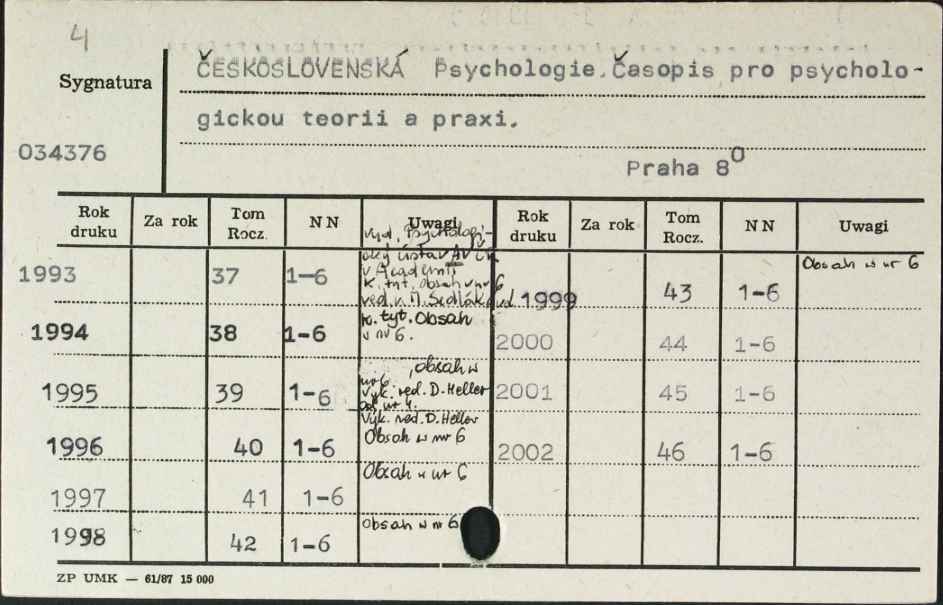 4
Sygnatura
ČESKOSLOVENSKÁ Psychologie.Časopis pro psycholo-
gickou teorii a praxi.
034376
Praha 8⁰
Rok druku Za rok Tom Rocz. NN Uwagi Rok druku Za rok Tom Rocz. NN Uwagi
wyd. Psychologi-
cký ústav AV ČR
1993 37 1-6 v Academii
k. tyt. obsah w nr 6
ved. v. M. Sedláková
1999 43 1-6 Obsah w nr 6
1994 38 1-6 k. tyt. Obsah
w nr 6.
2000 44 1-6
, obsah w
nr 6
1995 39 1-6 Výk. red. D. Heller
od nr 4.
2001 45 1-6
Výk. red. D. Heller
1996 40 1-6 Obsah w nr 6
2002 46 1-6
1997 41 1-6 Obsah w nr 6
1998 42 1-6 Obsah w nr 6
ZP UMK — 61/87 15 000